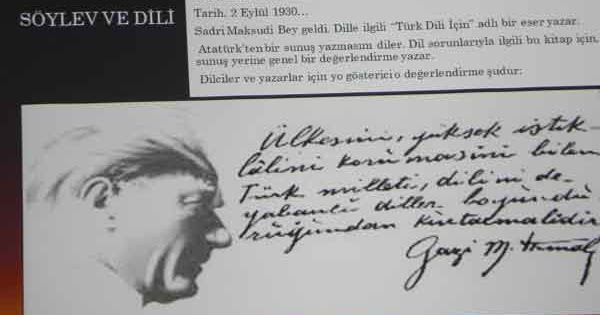 SÖYLEV VE DİLİ
Tarih, 2 Eylül 1930...
Sadri Maksudi Bey geldi. Dille ilgili "Türk Dili İçin" adlı bir eser yazar.
Atatürk'ten bir sunuş yazmasını diler. Dil sorunlarıyla ilgili bu kitap için,
sunuş yerine genel bir değerlendirme yazar.
Dilciler ve yazarlar için yo gösterici o değerlendirme şudur:
Ülkesini, yüksek istik-
lâlini korumasını bilen
Türk milleti, dilini de
yabancı diller boyundu
ruğundan kurtarmalıdır
Gazi M. Kemal